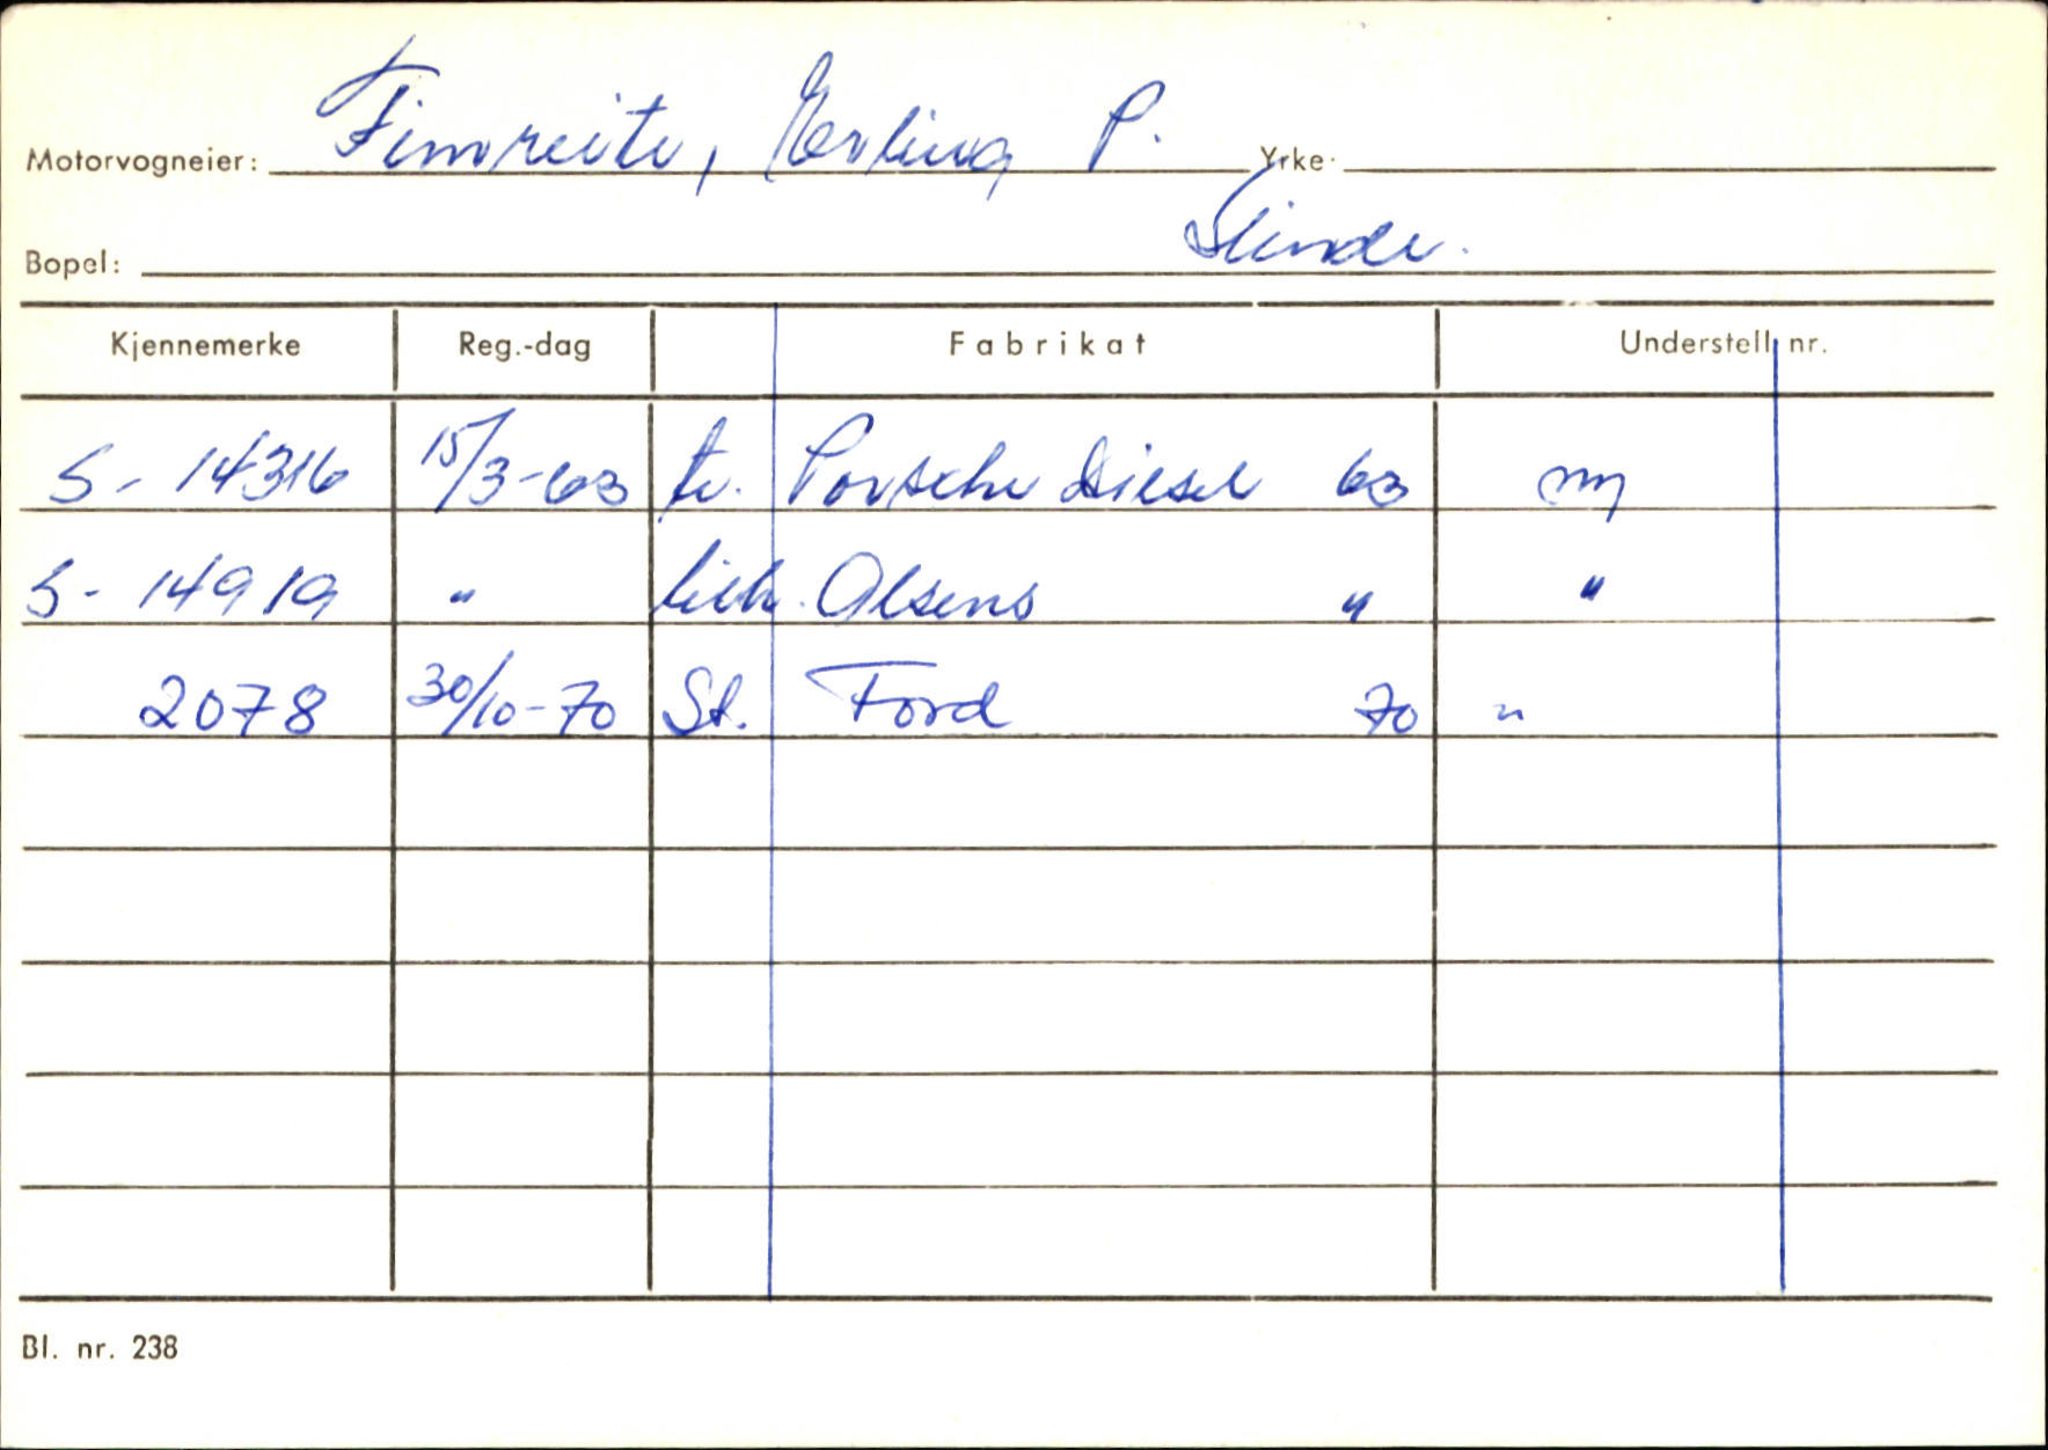 Motorvogneier: Fimreite, Erling P. Yrke:
Bopel: Slinde.
Kjennemerke Reg.-dag Fabrikat Understell nr.
S- 14316 15/3-63 tr. Porsche Diesel 63 ny
S- 14919 " tilh. Olsens " "
2078 30/10-70 St. Ford 70 "
Bl. nr. 238